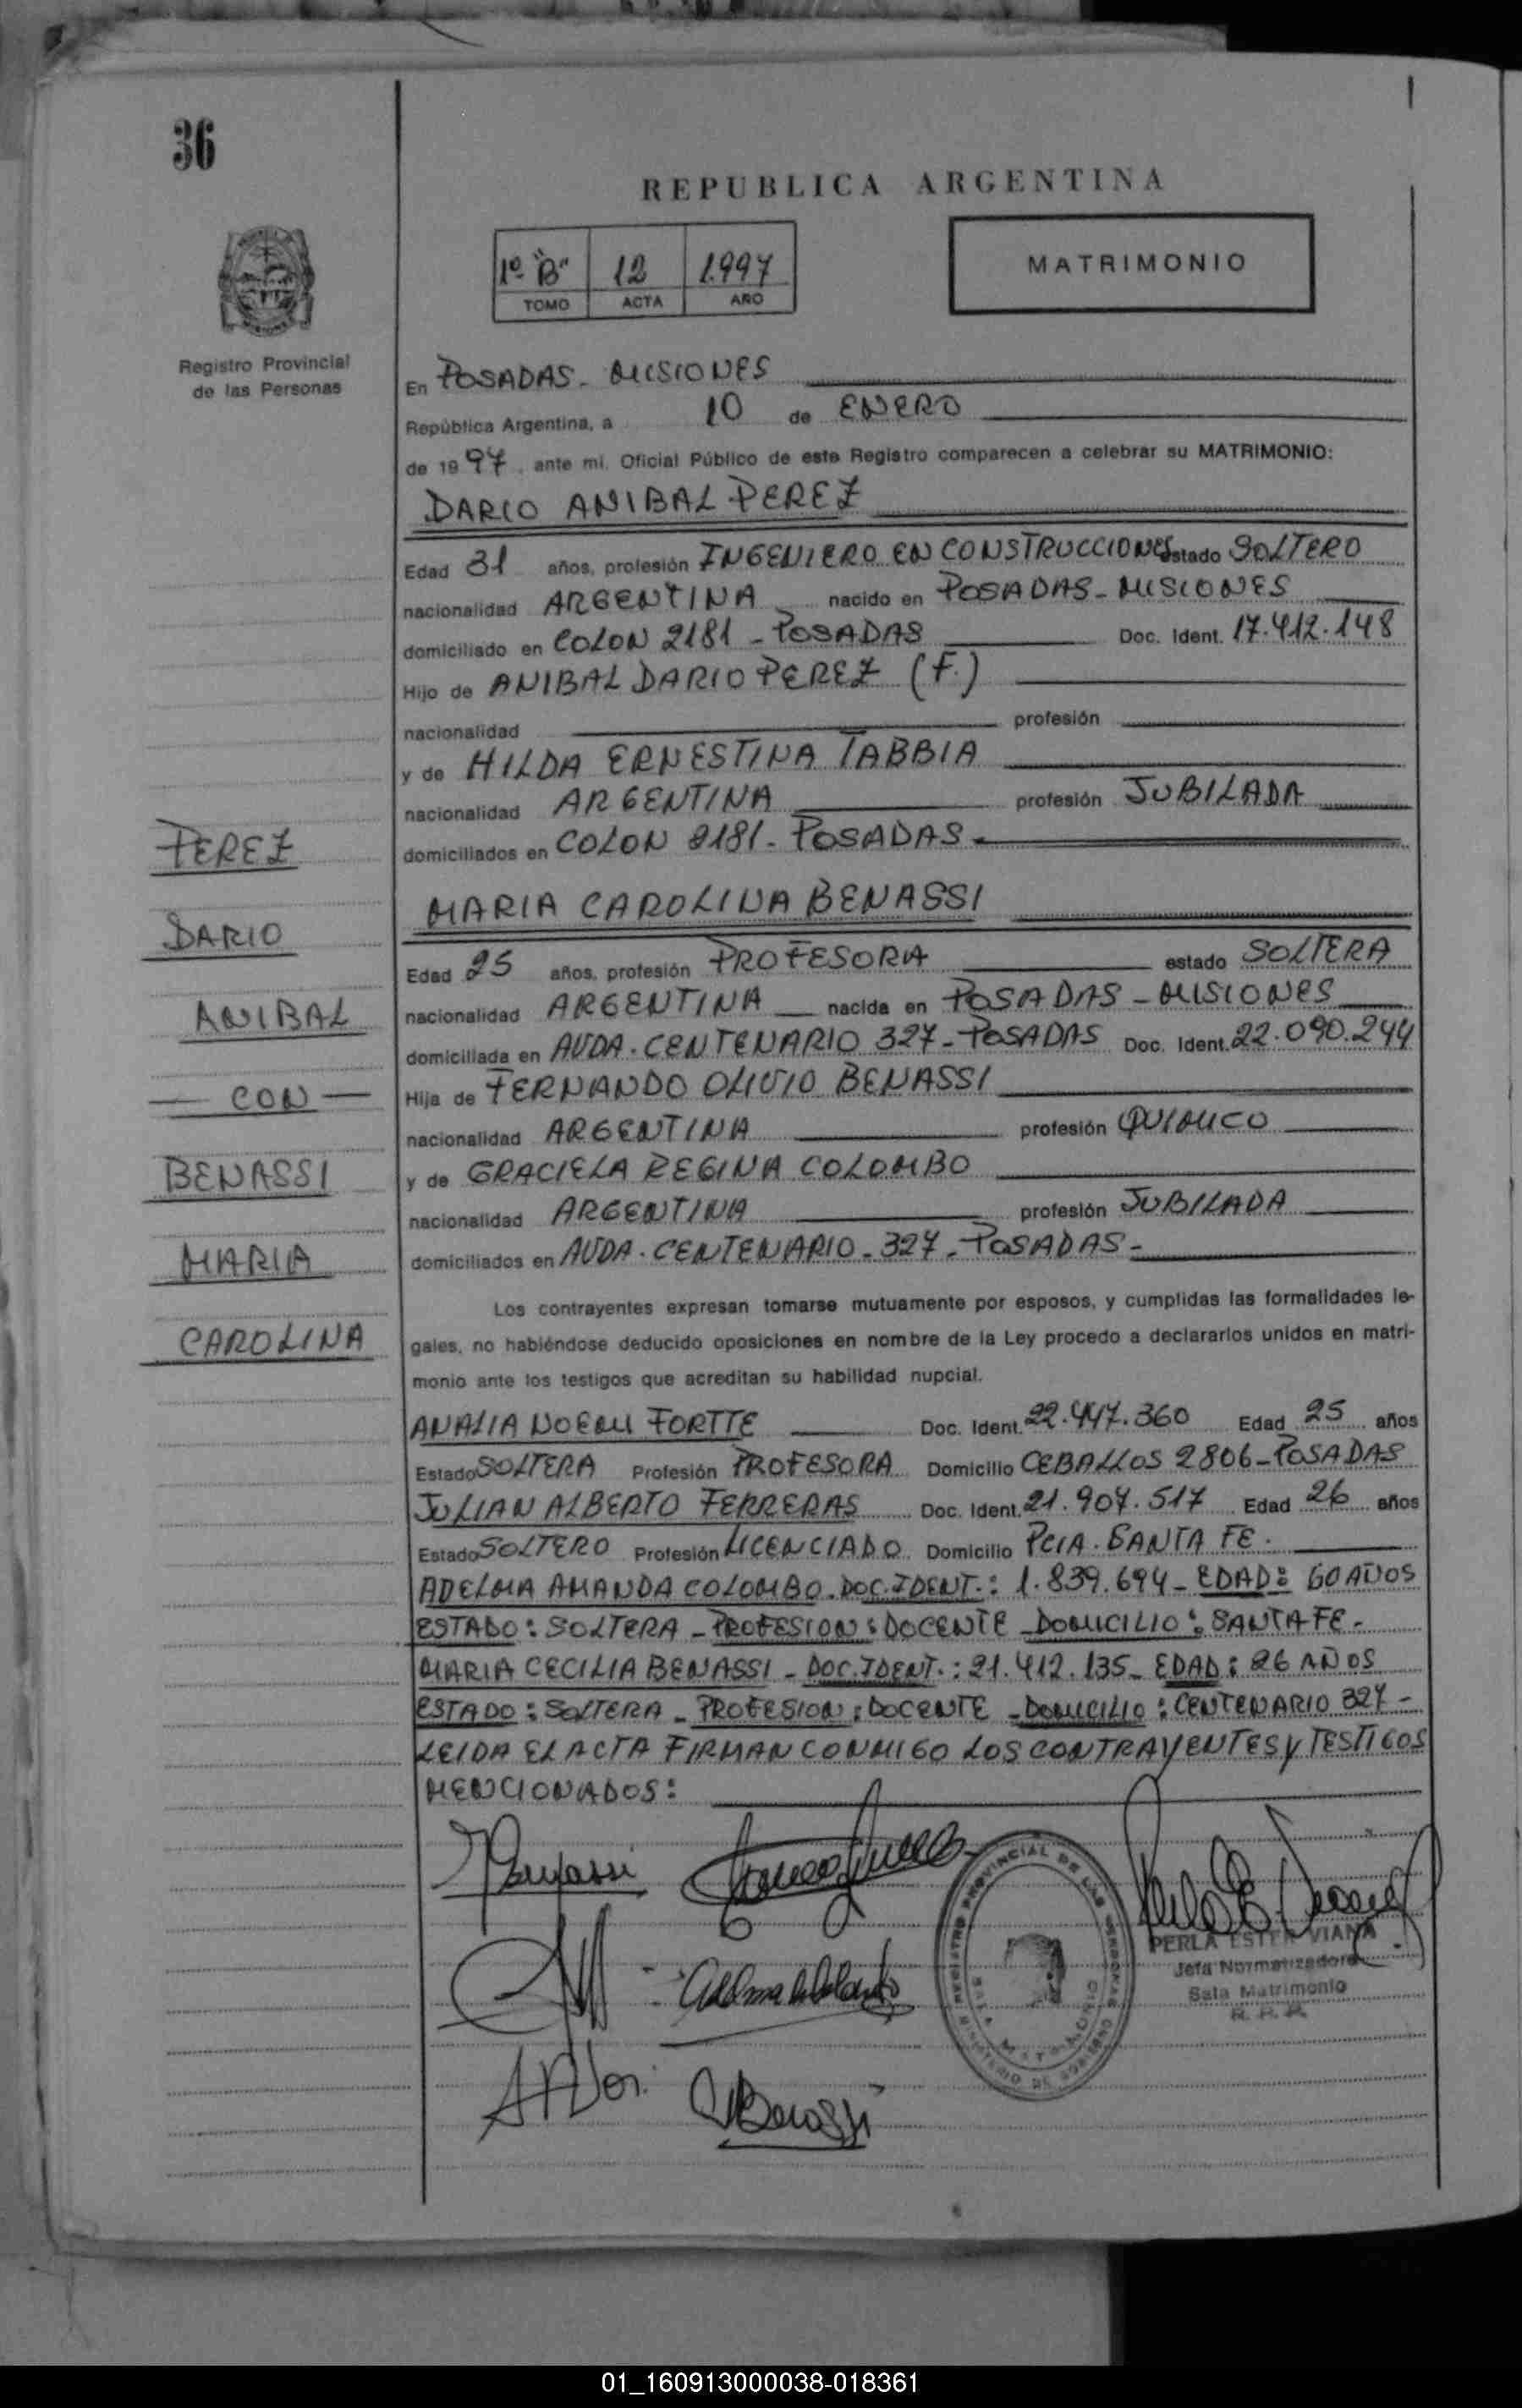 36
REPUBLICA ARGENTINA
1º "B" 12 1.997
TOMO ACTA AÑO
MATRIMONIO
Registro Provincial
de las Personas
En POSADAS - MISIONES
República Argentina, a 10 de ENERO
de 1997, ante mi, Oficial Público de este Registro comparecen a celebrar su MATRIMONIO:
DARIO ANIBAL PEREZ
Edad 31 años, profesión INGENIERO EN CONSTRUCCIONES estado SOLTERO
nacionalidad ARGENTINA nacido en POSADAS - MISIONES
domiciliado en COLON 2181 - POSADAS Doc. Ident. 17.412.148
Hijo de ANIBAL DARIO PEREZ (F.)
nacionalidad profesión
y de HILDA ERNESTINA TABBIA
nacionalidad ARGENTINA profesión JUBILADA
domiciliados en COLON 2181 - POSADAS -
MARIA CAROLINA BENASSI
Edad 25 años, profesión PROFESORA estado SOLTERA
nacionalidad ARGENTINA nacida en POSADAS - MISIONES
domiciliada en AVDA. CENTENARIO 327 - POSADAS Doc. Ident. 22.090.244
Hija de FERNANDO OLIVIO BENASSI
nacionalidad ARGENTINA profesión QUIMICO
y de GRACIELA REGINA COLOMBO
nacionalidad ARGENTINA profesión JUBILADA
domiciliados en AVDA. CENTENARIO - 327 - POSADAS -
PEREZ
DARIO
ANIBAL
— CON —
BENASSI
MARIA
CAROLINA
Los contrayentes expresan tomarse mutuamente por esposos, y cumplidas las formalidades le-
gales, no habiéndose deducido oposiciones en nombre de la Ley procedo a declararlos unidos en matri-
monio ante los testigos que acreditan su habilidad nupcial.
ANALIA NOEMI FORTTE Doc. Ident. 22.447.360 Edad 25 años
Estado SOLTERA Profesión PROFESORA Domicilio CEBALLOS 2806 - POSADAS
JULIAN ALBERTO FERRERAS Doc. Ident. 21.907.517 Edad 26 años
Estado SOLTERO Profesión LICENCIADO Domicilio PCIA. SANTA FE.
ADELMA AMANDA COLOMBO. DOC. IDENT.: 1.839.694 - EDAD: 60 AÑOS
ESTADO: SOLTERA - PROFESION: DOCENTE - DOMICILIO: SANTA FE -
MARIA CECILIA BENASSI - DOC. IDENT.: 21.412.135 - EDAD: 26 AÑOS
ESTADO: SOLTERA - PROFESION: DOCENTE - DOMICILIO: CENTENARIO 327 -
LEIDA EL ACTA FIRMAN CONMIGO LOS CONTRAYENTES Y TESTIGOS
MENCIONADOS:
REGISTRO PROVINCIAL DE LAS PERSONAS
SALA MATRIMONIO
MINISTERIO DE GOBIERNO
PERLA ESTER VIANA
Jefa Normatizadora
Sala Matrimonio
R. P. P.
01_160913000038-018361